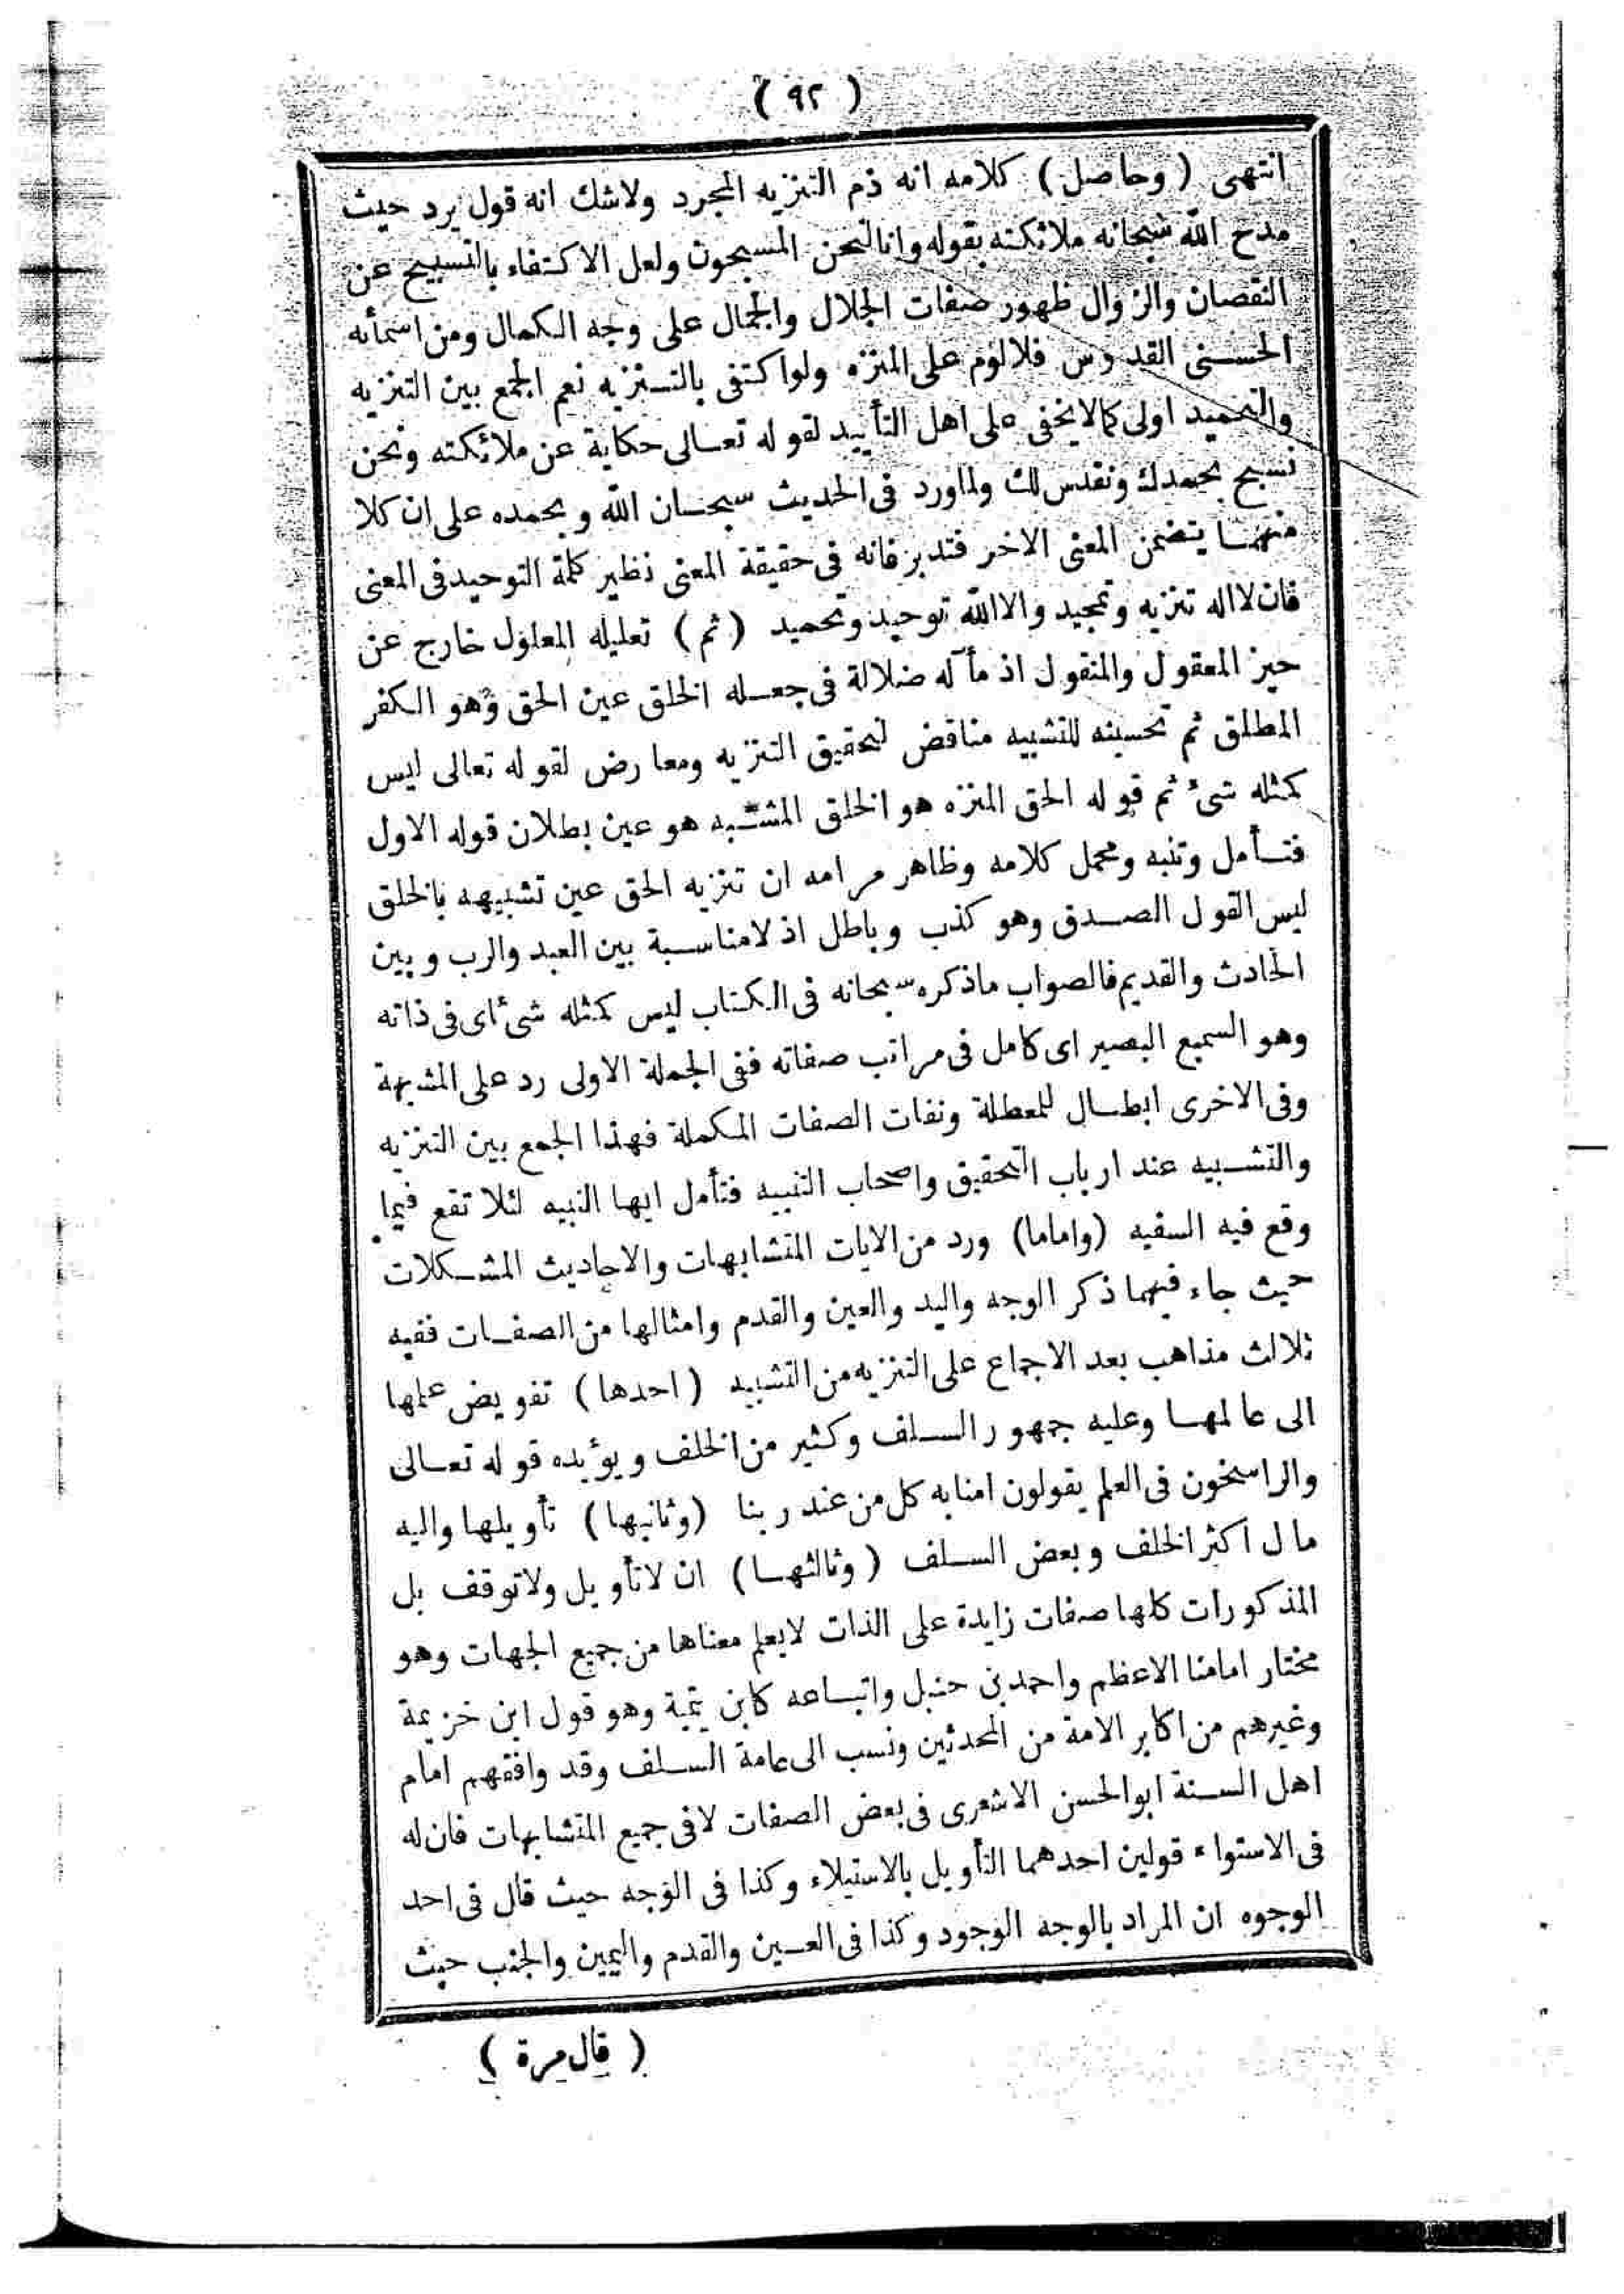 ( ٩٢ )
انتهى (وحاصل) كلامه انه ذم التنزيه المجرد ولاشك انه قول يرد حيث
مدح الله سبحانه ملائكته بقوله وانالنحن المسبحون ولعل الاكتفاء بالتسبيح عن
النقصان والزوال ظهور صفات الجلال والجمال على وجه الكمال ومن اسمأئه
الحسنى القدوس فلالوم على المنزه ولواكتفى بالتنزيه نعم الجمع بين التنزيه
والتحميد اولى كالايخفى على اهل التأييد لقوله تعالى حكاية عن ملائكته ونحن
نسبح بحمدك ونقدس لك ولماورد فى الحديث سبحان الله وبحمده على ان كلا
منهما يتضمن المعنى الاخر فتدبر فانه فى حقيقة المعنى نظير كلمة التوحيد فى المعنى
فان لااله تنزيه وتمجيد والاالله توحيد وتحميد (ثم) تعليله المعلول خارج عن
حيز المعقول والمنقول اذ مأآله ضلالة فى جعله الخلق عين الحق وهو الكفر
المطلق ثم تحسينه للتشبيه مناقض لتحقيق التنزيه ومعارض لقوله تعالى ليس
كمثله شئ ثم قوله الحق المنزه هو الخلق المشبه هو عين بطلان قوله الاول
فتأمل وتنبه ومجمل كلامه وظاهر مرامه ان تنزيه الحق عين تشبيهه بالخلق
ليس القول الصدق وهو كذب وباطل اذ لامناسبة بين العبد والرب وبين
الحادث والقديم فالصواب ماذكره سبحانه فى الكتاب ليس كمثله شئ اى فى ذاته
وهو السميع البصير اى كامل فى مراتب صفاته ففى الجملة الاولى رد على المشبهة
وفى الاخرى ابطال للمعطلة ونفات الصفات المكملة فهذا الجمع بين التنزيه
والتشبيه عند ارباب التحقيق واصحاب التنبيه فتأمل ايها النبيه لئلا تقع فيما
وقع فيه السفيه (واماما) ورد من الايات المتشابهات والاحاديث المشكلات
حيث جاء فيهما ذكر الوجه واليد والعين والقدم وامثالها من الصفات ففيه
ثلاث مذاهب بعد الاجماع على التنزيه من التشبيه (احدها) تفويض علمها
الى عالمها وعليه جمهور السلف وكثير من الخلف ويؤيده قوله تعالى
والراسخون فى العلم يقولون امنابه كل من عند ربنا (وثانيها) تأويلها واليه
مال اكثر الخلف وبعض السلف (وثالثها) ان لاتأويل ولاتوقف بل
المذكورات كلها صفات زايدة على الذات لايعلم معناها من جميع الجهات وهو
مختار امامنا الاعظم واحمد بن حنبل واتباعه كابن تيمية وهو قول ابن خزيمة
وغيرهم من اكابر الامة من المحدثين ونسب الى عامة السلف وقد وافقهم امام
اهل السنة ابوالحسن الاشعرى فى بعض الصفات لافى جميع المتشابهات فان له
فى الاستواء قولين احدهما التأويل بالاستيلاء وكذا فى الوجه حيث قال فى احد
الوجوه ان المراد بالوجه الوجود وكذا فى العين والقدم واليمين والجنب حيث
( قال مرة )